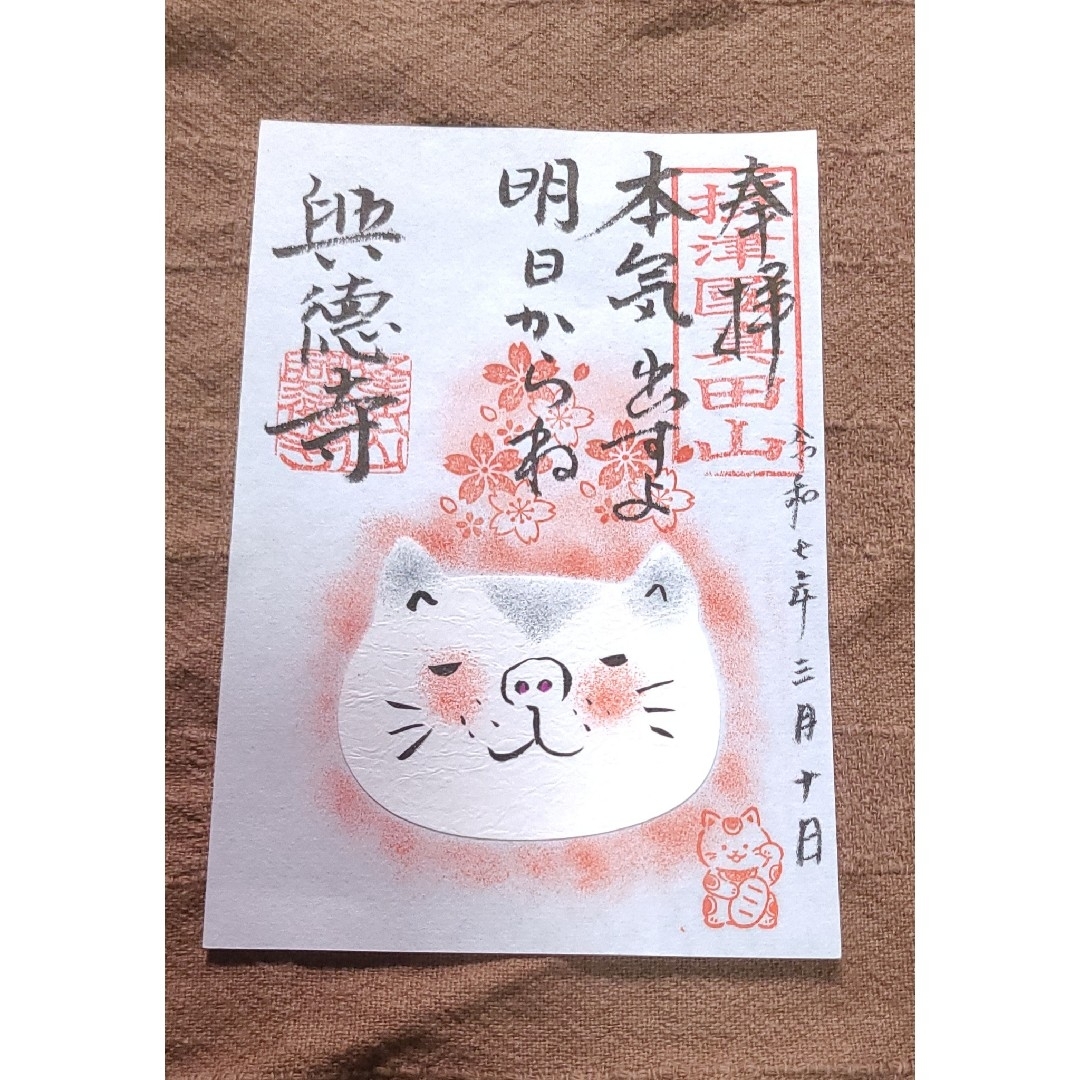 奉拝
摂津國真田山
令和七年三月十日
本気出すよ
明日からね
興徳寺